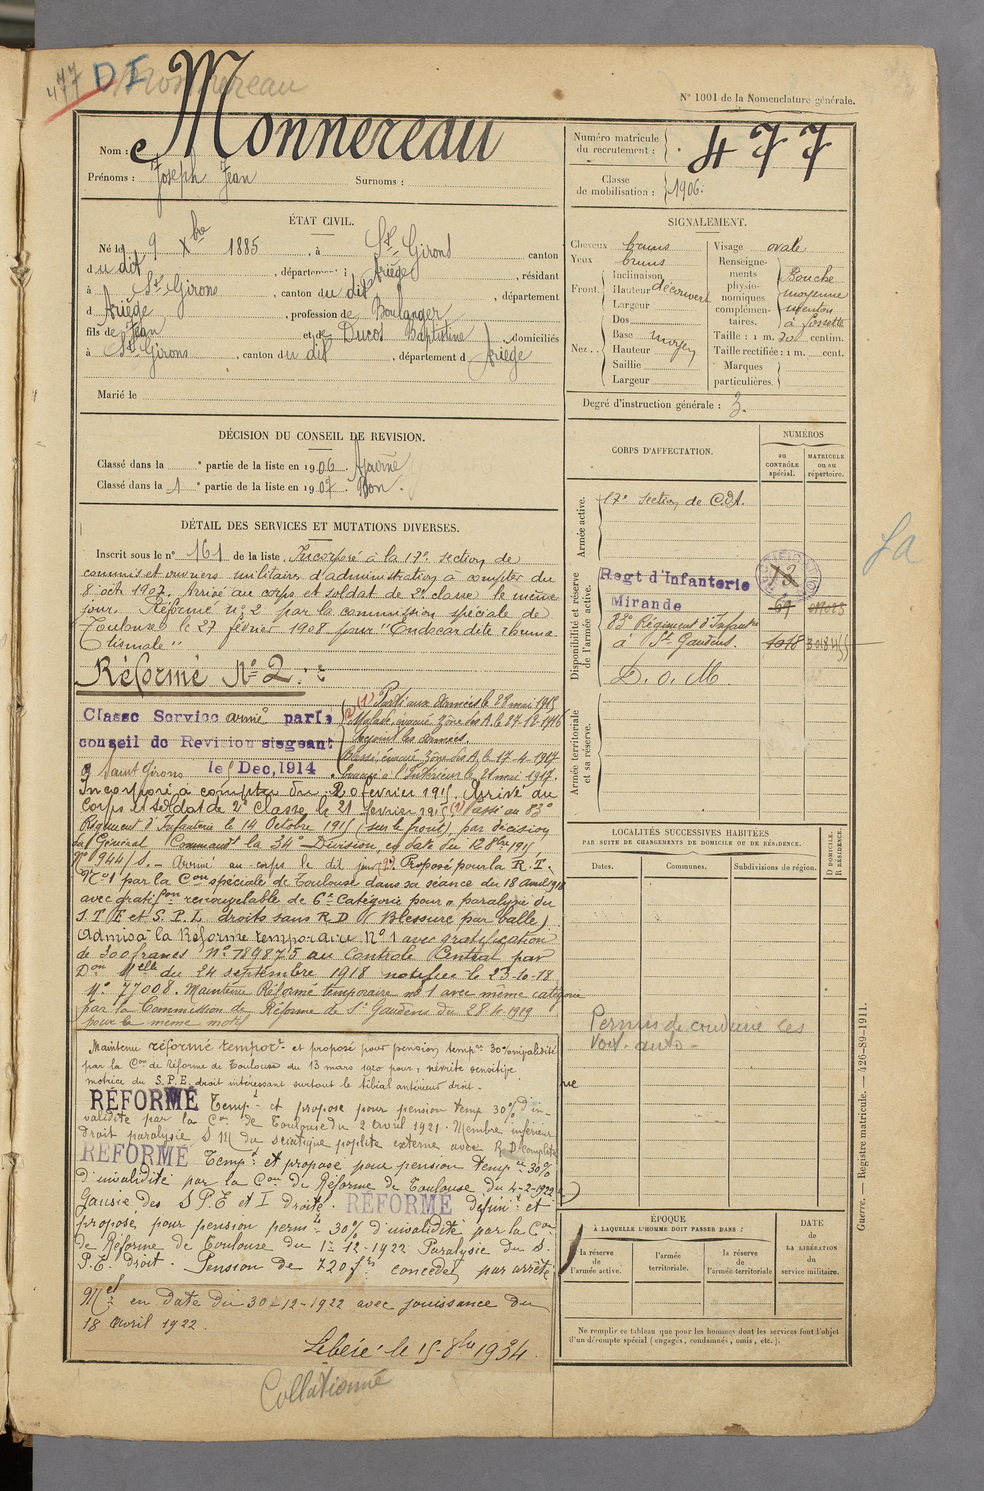 477 D I Monnereau
N° 1001 de la Nomenclature générale.
Nom : Monnereau
Prénoms : Joseph Jean Surnoms :
Numéro matricule du recrutement : 477
Classe de mobilisation : 1906.
ÉTAT CIVIL.
Né le 9 Xbre 1885, à St Girons canton
du dit, département d Ariège, résidant
à St Girons, canton du dit, département
d Ariège, profession de Boulanger
fils de Jean et de Ducos Baptistine, domiciliés
à St Girons, canton du dit, département d Ariège
Marié le
SIGNALEMENT.
Cheveux bruns
Yeux bruns
Front. Inclinaison
Hauteur découvert
Largeur
Nez. Dos
Base moyen
Hauteur
Saillie
Largeur
Visage ovale
Renseignements physionomiques complémentaires. Bouche moyenne menton à fossette
Taille : 1 m. 70 centim.
Taille rectifiée : 1 m. cent.
Marques particulières.
Degré d'instruction générale : 3.
DÉCISION DU CONSEIL DE REVISION.
Classé dans la e partie de la liste en 1906. Ajourné
Classé dans la 1 e partie de la liste en 1907. Bon.
CORPS D'AFFECTATION.
NUMÉROS
au CONTRÔLE spécial.
MATRICULE ou au répertoire.
Armée active.
17e Section de C.O.A.
Disponibilité et réserve de l'armée active.
Regt d'Infanterie
Mirande
83e Régiment d'Infanterie
à St Gaudens.
D. o. M.
Armée territoriale et sa réserve.
DÉTAIL DES SERVICES ET MUTATIONS DIVERSES.
Inscrit sous le n° 161 de la liste. Incorporé à la 17e section de
commis et ouvriers militaires d'administration à compter du
8 oct 1907. Arrivé au corps et soldat de 2e classe le même
jour. Réformé n° 2 par la commission spéciale de
Toulouse le 27 février 1908 pour "Endocardite rhuma
tismale"
Réformé N° 2.
Classe Service armé par le
conseil de Revision siegeant
à Saint Girons le 5 Dec, 1914
(1) Parti aux Armées le 28 mai 1915
(2) Malade, évacué Zône des A. le 27-12-1916
Rejoint les Armées.
Blessé, évacué Zône des A. le 17-4-1917
Evacué à l'Intérieur le 21 mai 1917.
Incorporé à compter du 20 février 1915. Arrivé au
Corps et soldat de 2e Classe le 21 février 1915 (1) Passé au 83e
Régiment d'Infanterie le 14 Octobre 1915 (sur le front), par décision
du Général Command la 34e Division, en date du 12 8bre 1915
N° 944/S. Arrivé au corps le dit jour (2). Proposé pour la R.T.
N° 1 par la Con spéciale de Toulouse dans sa séance du 18 avril 1918
avec gratifon renouvelable de 6e Catégorie pour "paralysie du
S.P.E et S.P.I. droits sans R.D (Blessure par balle)
Admis à la Réforme temporaire N° 1 avec gratification
de 300 francs N° 789875 au Contrôle Central par
Don Melle du 24 septembre 1918 notifiée le 23-10-18
N° 77008. Maintenu Réformé temporaire n° 1 avec même catégorie
par la Commission de Réforme de St Gaudens du 28-4-1919
pour le même motif
Maintenu réformé tempore et proposé pour pension tempre 30% invalidité
par la Con de Réforme de Toulouse du 13 mars 1920 pour : névrite sensitive
motrice du S.P.E. droit intéressant surtout le tibial antérieur droit.
RÉFORMÉ Temp. et proposé pour pension temp 30% d'in-
validité par la Con de Toulouse du 2 Avril 1921. Membre inférieur
droit paralysie S M du sciatique poplité externe avec R.D. complète
REFORMÉ Temp. et proposé pour pension temp.re 30%
d'invalidité par la Con de Réforme de Toulouse du 4-2-1922
des S.P.E et I droits. RÉFORMÉ définit et
proposé pour pension perm.te 30% d'invalidité par la Con
de Réforme de Toulouse du 1er 12-1922 Paralysie du S.
P.E. droit. Pension de 720 frs concédée par arrêté
Mel en date du 30-12-1922 avec jouissance du
18 Avril 1922.
Libéré le 15-8bre 1934.
Collationné
LOCALITÉS SUCCESSIVES HABITÉES
PAR SUITE DE CHANGEMENTS DE DOMICILE OU DE RÉSIDENCE.
Dates. Communes. Subdivisions de région.
D. DOMICILE. R. RÉSIDENCE.
Permis de conduire les
Voit. auto
ÉPOQUE
À LAQUELLE L'HOMME DOIT PASSER DANS :
la réserve de l'armée active.
l'armée territoriale.
la réserve de l'armée territoriale
DATE de LA LIBÉRATION du service militaire.
Ne remplir ce tableau que pour les hommes dont les services font l'objet
d'un décompte spécial (engagés, condamnés, omis, etc.).
Guerre. — Registre matricule. — 426-89-1911.